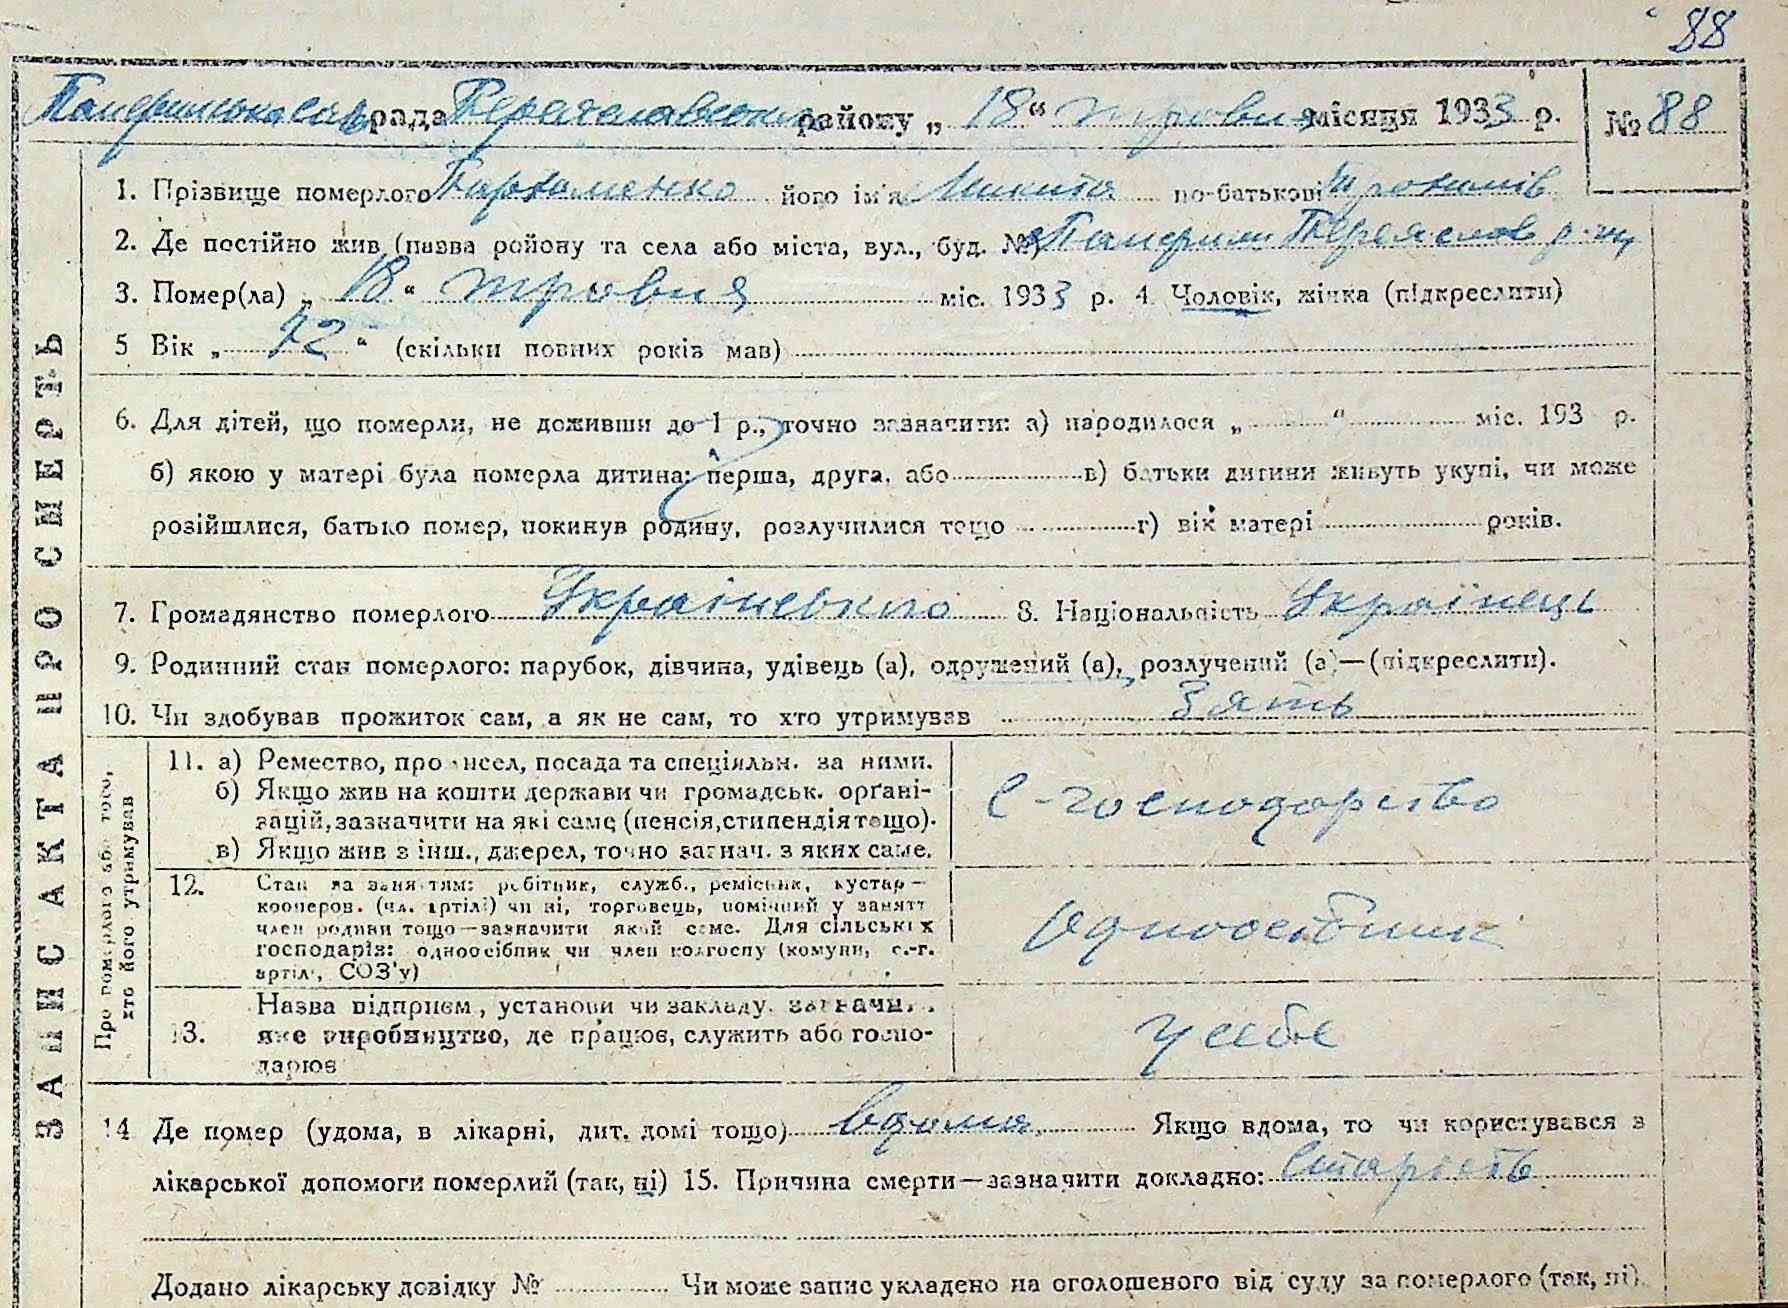 88
рада Переяславського району „ 18 “ травня місяця 1933 р. № 88
ЗАПИС АКТА ПРО СМЕРТЬ
1. Прізвище померлого Пархоменко його ім'я Микита по-батькові
2. Де постійно жив (назва району та села або міста, вул., буд. №)
3. Помер(ла) „ 18 “ травня міс. 1933 р. 4. Чоловік, жінка (підкреслити)
5 Вік „ 72 “ (скільки повних років мав)
6. Для дітей, що померли, не доживши до 1 р., точно зазначити: а) народилося „ “ міс. 193 р.
б) якою у матері була померла дитина: перша, друга, або в) батьки дитини живуть укупі, чи може
розійшлися, батько помер, покинув родину, розлучилися тощо г) вік матері років.
7. Громадянство померлого 8. Національність Українець
9. Родинний стан померлого: парубок, дівчина, удівець (а), одружений (а), розлучений (а)—(підкреслити).
10. Чи здобував прожиток сам, а як не сам, то хто утримував Зять
Про померлого або того,
хто його утримував
11. а) Ремество, промисел, посада та спеціяльн. за ними.
б) Якщо жив на кошти держави чи громадськ. орґані-
зацій, зазначити на які саме (пенсія, стипендія тощо).
в) Якщо жив з інш., джерел, точно зазнач. з яких саме.
С-господарство
12. Стан за заняттям: робітник, служб., ремісник, кустар—
кооперов. (чл. артілі) чи ні, торговець, помічний у занятт
член родини тощо—зазначити який саме. Для сільських
господарів: одноосібник чи член колгоспу (комуни, с.-г.
артілі, СОЗ'у)
Одноосібник
13. Назва підприєм, установи чи закладу, зазначи,
яке виробництво, де працює, служить або госпо-
дарює
у себе
14 Де помер (удома, в лікарні, дит. домі тощо) вдома Якщо вдома, то чи користувався з
лікарської допомоги померлий (так, ні) 15. Причина смерти—зазначити докладно: Старість
Додано лікарську довідку № Чи може запис укладено на оголошеного від суду за померлого (так, ні).